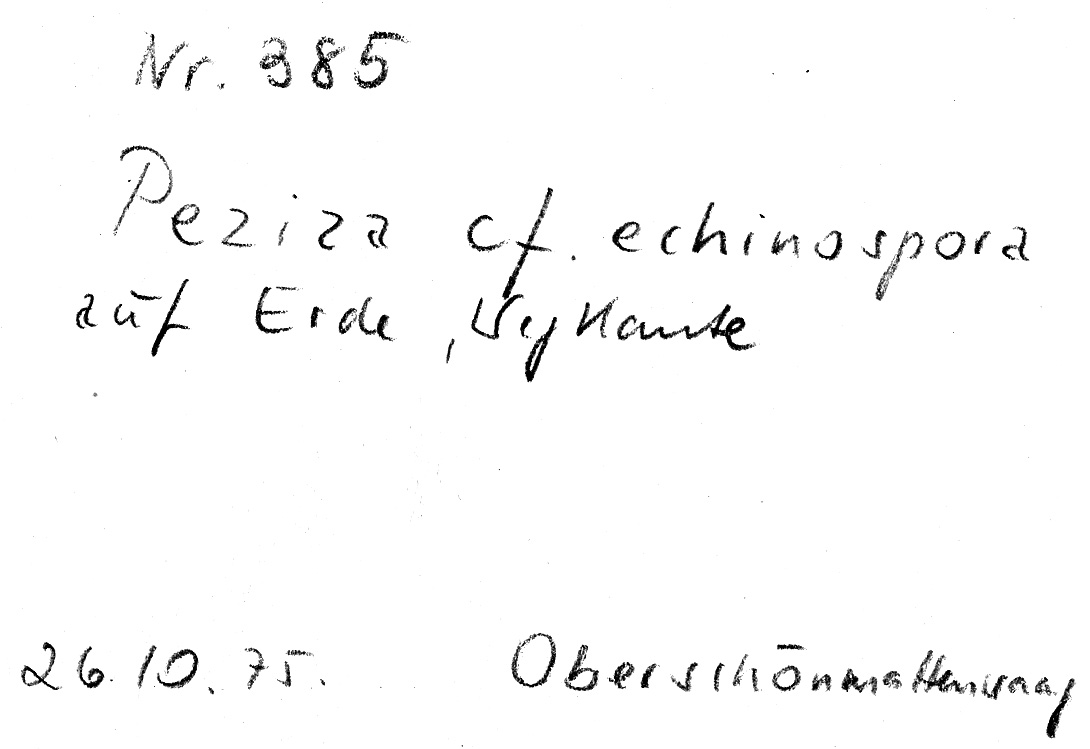 Nr. 385
Peziza cf. echinospora
auf Erde, Wegkante
26.10.75. Oberschönmattenwaag